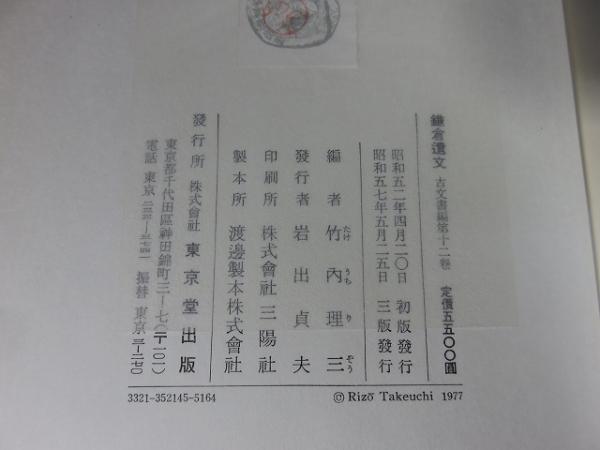 鎌倉遺文 古文書編第十二巻 定價五五〇〇圓
昭和五二年四月二〇日 初版發行
昭和五七年五月二五日 三版發行
編者 竹內理三
たけ うち り ぞう
發行者 岩出貞夫
印刷所 株式會社三陽社
製本所 渡邊製本株式會社
發行所 株式會社 東京堂出版
東京都千代田區神田錦町三ー七(〒一〇一)
電話 東京 振替 東京
3321-352145-5164
© Rizō Takeuchi 1977